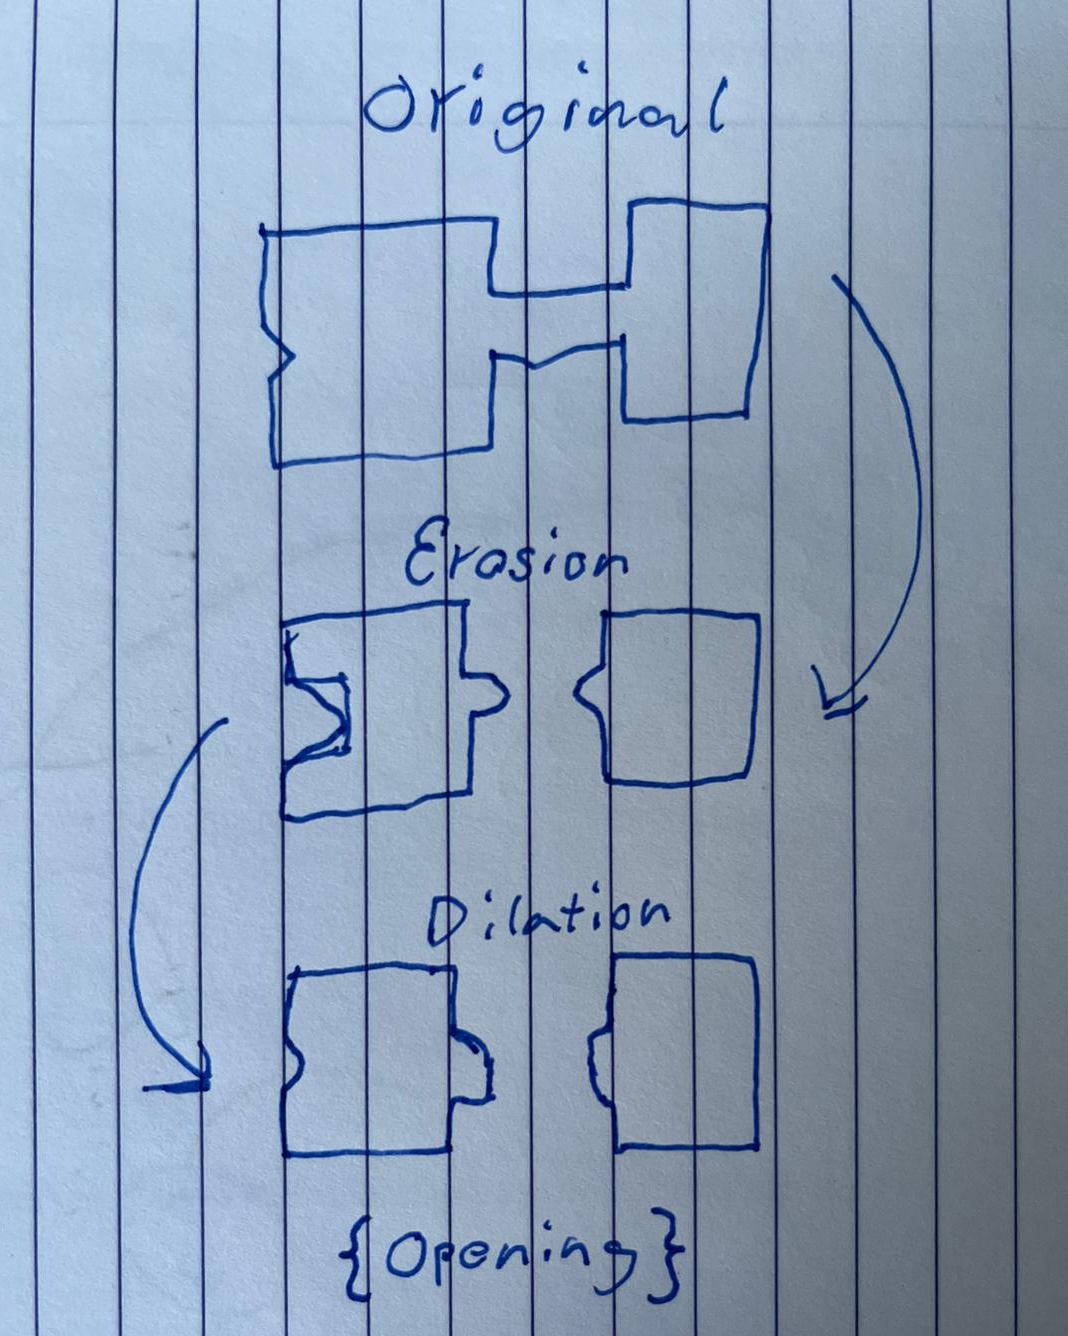 Original
Erosion
Dilation
{Opening}